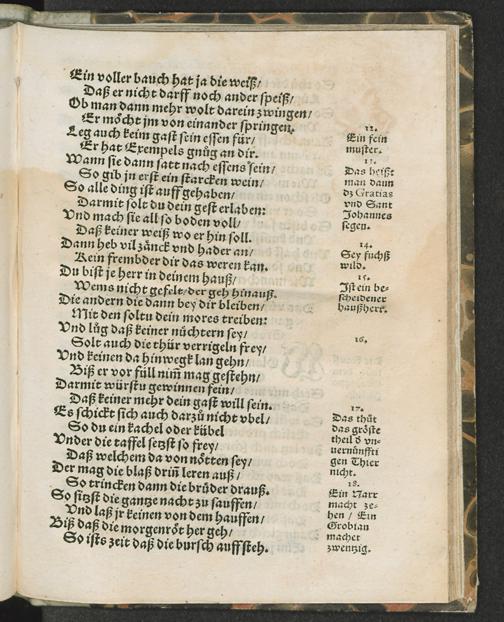 Ein voller bauch hat ja die weiß/
Daß er nicht darff noch ander speiß/
Ob man dann mehr wolt darein zwingen/
Er möcht jm von einander springen.
Leg auch keim gast sein essen für/
Er hat Exempels gnůg an dir.
Wann sie dann satt nach essens sein/
So gib jn erst ein starcken wein/
So alle ding ist auff gehaben/
Darmit solt du dein gest erlaben:
Vnd mach sie all so boden voll/
Daß keiner weiß wo er hin soll.
Dann heb vil zänck vnd hader an/
Kein frembder dir das weren kan.
Du bist je herr in deinem hauß/
Wems nicht gefelt/der geh hinauß.
Die andern die dann bey dir bleiben/
Mit den soltu dein mores treiben:
Vnd lůg daß keiner nüchtern sey/
Solt auch die thür verrigeln frey/
Vnd keinen da hinwegk lan gehn/
Biß er vor füll nim̄ mag gestehn/
Darmit würstu gewinnen fein/
Daß keiner mehr dein gast will sein.
Es schickt sich auch darzů nicht vbel/
So du ein kachel oder kübel
Vnder die taffel setzst so frey/
Daß welchem da von nötten sey/
Der mag die blaß drin̄ leren auß/
So trincken dann die brüder drauß.
So sitzst die gantze nacht zu sauffen/
Vnd laß jr keinen von dem hauffen/
Biß daß die morgenröt her geh/
So ists zeit daß die bursch auffsteh.
12.
Ein fein
muster.
13.
Das heißt
man dann
dz Gratias
vnd Sant
Johannes
segen.
14.
Sey fuchß
wild.
15.
Ist ein be-
scheidener
haußherr.
16.
17.
Das thůt
das gröste
theil d vn-
uernünffti
gen Thier
nicht.
18.
Ein Narr
macht ze-
hen / Ein
Grobian
machet
zwentzig.